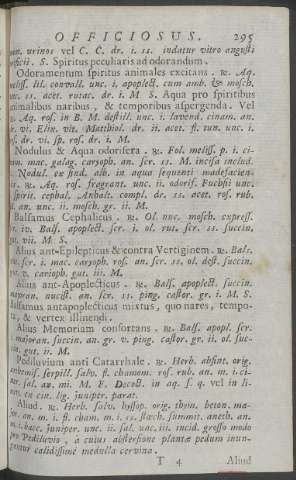 OFFICIOSUS. 295
urinos vel C. C. dr. i. ss. indatur vitro angusti
orificii. 5. Spiritus peculiaris ad odorandum.
Odoramentum spiritus animales excitans. ℞. Aq.
meliss. lil. convall. unc. i. apoplect. cum amb. & mosch.
unc. ss. acet. rosac. dr. i. M S. Aqua pro spiritibus
animalibus naribus, & temporibus aspergenda. Vel
℞. Aq. ros. in B. M. destill. unc. i. lavend. cinam. an.
vi. Elix. vit. Matthiol. dr. ii. acet. fl. tun. unc. i.
dr. vi. sp. ros. dr. i. M
Nodulus & Aqua odorifera. ℞. Fol. meliss. p. i. ci-
nam. mac. galag. caryoph. an. scr. ss. M. incisa includ.
Nodul. ex sind. alb. in aqua sequenti madefacien-
℞. Aq. ros. fragrant. unc. ii. odorif. Fuchsii unc.
spirit. cephal. Anhalt. compl. dr. ss. acet. ros. rub.
an. unc. ii. mosch. gr. ii. M.
Balsamus Cephalicus. ℞. Ol. nuc. mosch. express.
scr. iv. Bals. apoplect. scr. i. ol. rut. scr. ss. succin.
gut. vii. M S.
Alius ant-Epilepticus & contra Vertiginem. ℞. Bals.
scr. i. mac. caryoph. ros. an. scr. ss. ol. dest. succin.
v. carioph. gut. iii. M.
Alius ant-Apoplecticus. ℞. Bals. apoplect. succin.
majoran. nucist. an. scr. ss. ping. castor. gr. i. M. S.
Balsamus antapoplecticus mixtus, quo nares, tempo-
ra, & vertex illinendi.
Alius Memoriam confortans. ℞. Bals. apopl. scr.
majoran. succin. an. gr. v. ping. castor. gr. ii. ol. suc-
cin. gut. ii. M.
Pediluvium anti Catarrhale. ℞. Herb. absint. orig.
artemis. serpill. salv. fl. chamom. ros. rub. an. m. i. ci-
sal. au. mi. M. F. Decoct. in aq. s. q. vel in li-
en cin. lig. juniper. parat.
Aliud. ℞. Herb. salv. hyssop. orig. thym. beton. ma-
an. m. i. fl. cham. m. i. ss. stoech. summit. aneth. an.
m. i. bacc. juniper. unc. ii. sal. unc. iii. incid. grosso modo
pro Pediluvio, à cuius abstersione plantæ pedum inun-
gantur calidissime medulla cervina.
T 4 Aliud